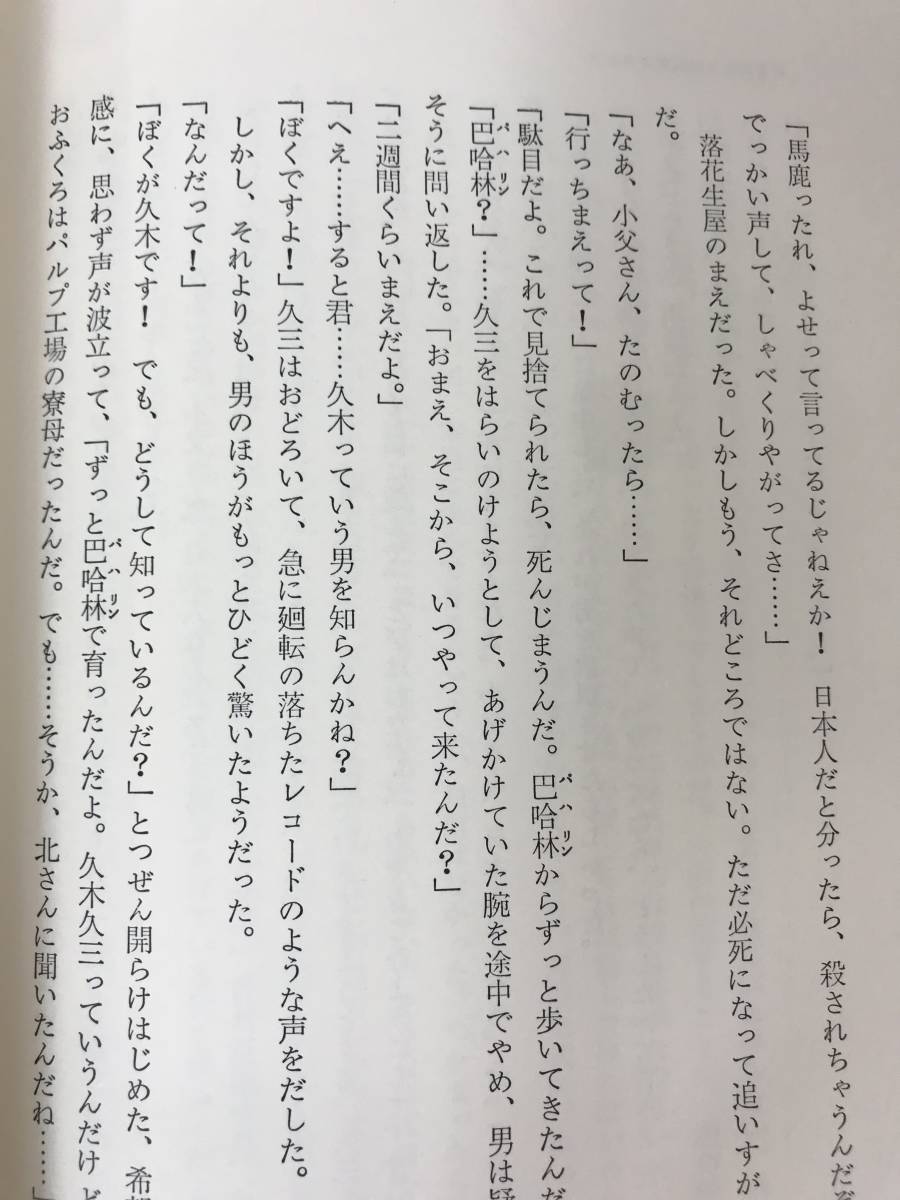 「馬鹿ったれ、よせって言ってるじゃねえか！　日本人だと分ったら、殺されちゃうんだぞ
でっかい声して、しゃべくりやがってさ……」
落花生屋のまえだった。しかしもう、それどころではない。ただ必死になって追いすが
だ。
「なあ、小父さん、たのむったら……」
「行っちまえって！」
「駄目だよ。これで見捨てられたら、死んじまうんだ。巴哈林からずっと歩いてきたんだ
「巴哈林？」……久三をはらいのけようとして、あげかけていた腕を途中でやめ、男は疑
そうに問い返した。「おまえ、そこから、いつやって来たんだ？」
「二週間くらいまえだよ。」
「へえ……すると君……久木っていう男を知らんかね？」
「ぼくですよ！」久三はおどろいて、急に廻転の落ちたレコードのような声をだした。
しかし、それよりも、男のほうがもっとひどく驚いたようだった。
「なんだって！」
「ぼくが久木です！　でも、どうして知っているんだ？」とつぜん開らけはじめた、希望
感に、思わず声が波立って、「ずっと巴哈林で育ったんだよ。久木久三っていうんだけど
おふくろはパルプ工場の寮母だったんだ。でも……そうか、北さんに聞いたんだね……」